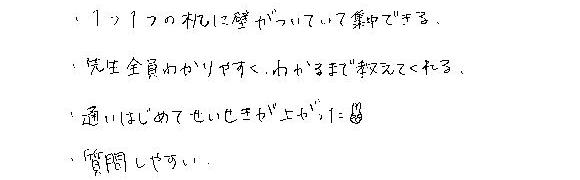 ・1つ1つの机に壁がついていて集中できる.
・先生全員わかりやすく、わかるまで教えてくれる.
・通いはじめてせいせきが上がった
・質問しやすい.